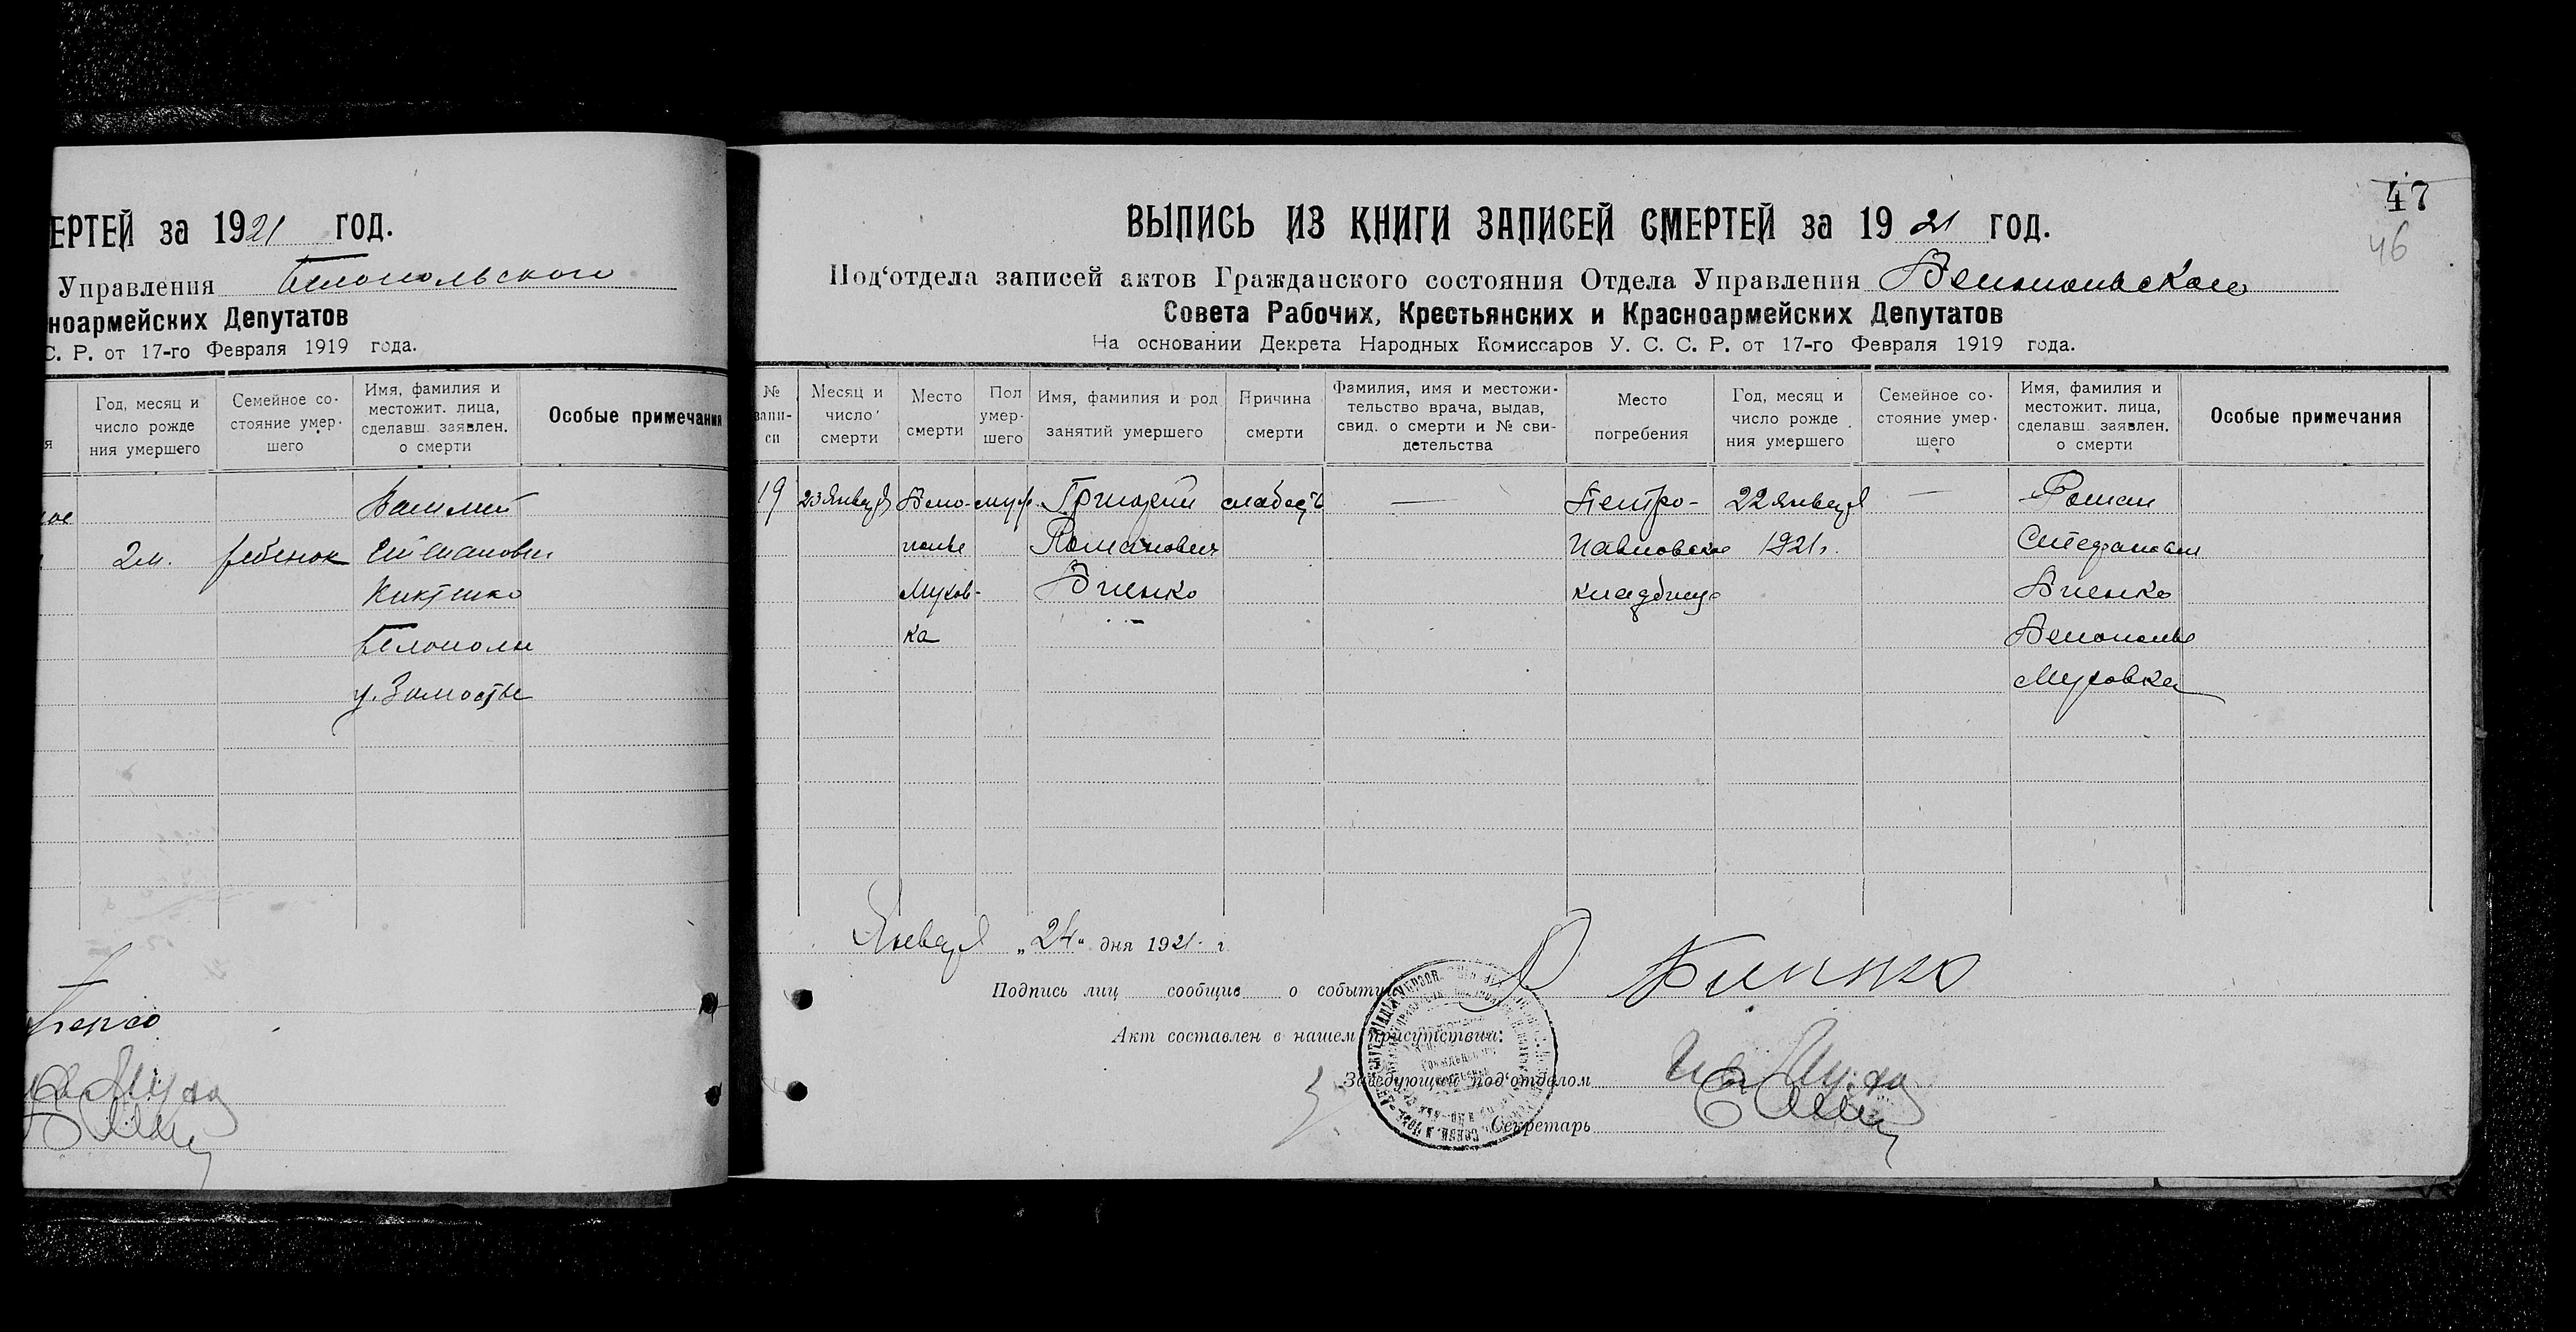 ЕРТЕЙ за 1921 год.
Управления Белопольского
ноармейских Депутатов
С. Р. от 17-го Февраля 1919 года.
я
Год, месяц и
число рожде
ния умершего
Семейное со-
стояние умер-
шего
Имя, фамилия и
местожит. лица,
сделавш. заявлен.
о смерти
Особые примечания
ое
2м.
ребенок
Василий
Степанович
Никтенко
Белополье
у. Замостье
47
46
ВЫПИСЬ ИЗ КНИГИ ЗАПИСЕЙ СМЕРТЕЙ за 1921 год.
Под'отдела записей актов Гражданского состояния Отдела Управления Белопольского
Совета Рабочих, Крестьянских и Красноармейских Депутатов
На основании Декрета Народных Комиссаров У. С. С. Р. от 17-го Февраля 1919 года.
№
запи-
си
Месяц и
число
смерти
Место
смерти
Пол
умер-
шего
Имя, фамилия и род
занятий умершего
Причина
смерти
Фамилия, имя и местожи-
тельство врача, выдав,
свид. о смерти и № сви-
детельства
Место
погребения
Год, месяц и
число рожде
ния умершего
Семейное со-
стояние умер-
шего
Имя, фамилия и
местожит. лица,
сделавш. заявлен.
о смерти
Особые примечания
19
23 Января
Бело-
полье
Мухов-
ка
муж.
Григорий
Романович
Биенко
слабость
—
Петро-
Павловское
кладбище
22 Января
1921 г.
—
Роман
Стефанович
Биенко
Белополье
Муховка
Января „24“ дня 1921 г.
Подпись лиц сообщив о событии
Р Биенко
Акт составлен в нашем присутствии:
Заведующий под'отделом
Секретарь